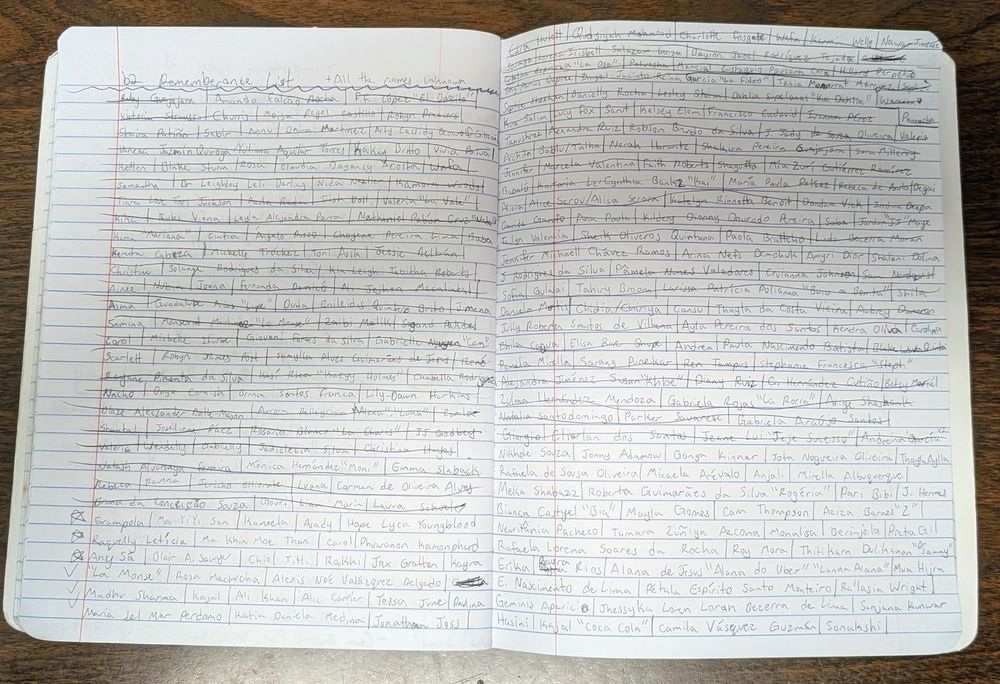 Rememberance List + All the names unknown
Ruby Guajajara | Amanda Falcão Rocha | F.F. López El Dasilo
Victoria | Churris | Moisa Reyel Castillo | Robyn
Staira Patiño | Sabir | Annu | Doina Martinez | Arty Cassidy
Vanesa Jazmín Quiroga | Yuliana Aguilar Torres | Kaikay Brito | Vivia Arival
Ketlen | Blake Sturm | Rosa | Claudia Dayansy Costa | Wafa
Samantha | Dr Leighley Leli Darling Nida | Kamoria Woods
Tiara Love Tori Jackson | Paula | Irish Doll | Valeria "La Vale"
Kilha | Rubi Viana | Leyla Alejandra Parra | Nathaniel Pabón Cruz
Kiara "Mariana" | Cintia | Ángelo Russo | Chogene Pereira Lima | Buba
Kendra Cabeza | Michelle Trochez | Toni Avila | Jessie Beltrán
Christine | Solange Rodrigues da Silva | Kia Leigh Tabitha Roberts
Ainee | Nubia | Joana | Fernanda | Al Jeyhan Macalintal
Asma | Guadalupe Arias "Lupe" | Duda | Enileidis Quintero Brito | Jimena
Samina | Monserrat "La Monse" | Zaibi Malik | Sajjad Pakdel
Carol | Michelle Iturbe | Giovani Fortes da Silva | Gabrielle Nguyen "Com"
Scarlett | Robyn James Post | Samylla Alves Guimarães de Jesus | René
Rayane Pimenta da Silva | José Rhea "Kreyy Holmes" | Chabella
Nacho | Onyx Cornish | Bruna Santos Franca | Lily-Dawn Harkins
Blaze Aleczander Balle-Mason | Aurora Pellegrina | Alexa "Luna" | Carla
Shantal | Joseline Páez | Rosario Blanco "La Charis" | JJ Godbey
Valeria Wendolly | Gabrially | Jadicleivia Silva | Christina Hayes
Natash Alvorada Ferreira | Mónica Hernández "Moni" | Emma Slabach
Rebeca | Ravena | Jericho | Luana | Carmen de Oliveira Alves
Bruna da Conceição Souza | Giouri | Liam Marin | Laura Schueler
Grampola | Ma Yi Yi San | Kaneela | Asady | Hope Lyca Youngblood
Raquelly Letícia | Ma Khin Moe Than | Carol | Phuwanon Kamonphard
Any Sá | Blair A. Sawyer | Chiol Titi | Rakhi | Jax Gratton | Kayra
"La Monse" | Rosa Machuca | Alexis Noé Velázquez Delgado
Madhu Sharma | Kajal | Ali Khan | Alic Carrier | Tessa June | Davina
María del Mar Perdomo | Katia Daniela Medina | Jonathan Joss
Cara Hulett | Qudsiyah Mahmood | Charlotte Fosgate | Wafa | Karmin Wells | Nawar Jiménez
Irisbell Salazar Luiga | Dayron Jhoel Rodríguez Tejada
"La Osa" | Palvasha | Mancial Eustaquio Pouyana Cora | Hillary Perpetno
Angel Jacinto Reina García "La Fido" | Tania Monserrat Márquez | Sophie
Sophie Steehan | Danielly Rocha | Lesley Storm | Dahlia Sipelanas "Ka Dahlia" |
Kia Salin | Lucy Fox | Sant | Kelsey Elem | Francisco Cadavid | Ivamm Pérez
Januchner | Alexandra Ruiz | Robson Bundo da Silva | J. Jady de Souza Oliveira | Valeria
Archita | Bablu/Talha | Norah Horwitz | Shakira Pereira Guajajara | Sara Millerey
Jennifer | Marcela Valentina | Faith Roberts | Shagufta | Mia Zuri Gutiérrez Ramírez
Bubaló | Kartaria LerCynthia Bankz "Kai" | María Paula Peláez | Rebeca de Paulo
Alicia | Alice Serov/Alisa Serova | Katelyn Rinnetta Benoit | Dandan Vick | Indiu Deepa
Davide Garofo | Ana Paula | Kilberg Dianny Dourado Pereira | Saba | Jordan "JJ" Paige
Jailyn Valencia | Sheik Oliveros Quintana | Paola Brattcho | Ludo Becerra Moran
Jennifer Michaell Chávez Ramos | Arina Nets Demchuk | Amyri Dior | Shalani Dolina
J. Rodrigues da Silva | Pâmela Nunes Valadares | Gruvianna Johnson | Sam Nordquist
Sofia | Gulalai | Tahiry Broom | Larissa Patrícia Polianna "Buru a Bonita" | Shila
Daniela Motti | Chidia/Chiriya | Cansu | Thayla da Costa Vieira | Aubrey Dameron
July Roberta Santos de Vilhena | Ayla Pereira dos Santos | Kendra Oliva | Carolina
Bhika | Elisa Rae Shupe | Andrea Paula Nascimento Batista | Blake
Pamela Mirella | Sarang Punekar | Ren Tampus | Stephanie Francesca "Steph"
Alejandra Jiménez | Susan "Khloe" | Diany Ruiz | Cori Hernández Cutizo | Betsy Mariel
Zulma Hernández Mendoza | Gabriela Rojas "La Rorra" | Paige
Natalia Santodomingo | Parker Savarese | Gabriela Araújo Santos
Giorgio | Eliarlan dos Santos | Jeane Lui "Jeje Sucessu" | Andreina García
Nikhole Souza | Jonny Adamow | Ganga Kinnar | Jota Nogueira Oliveira | Thayla Aylla
Rafaela de Sousa Oliveira | Micaela Arévalo | Anjali | Mirella Albuquerque
Meka Shabazz | Roberta Guimarães da Silva "Rogéria" | Pari Bibi | J. Hermes
Bianca Castyel "Bia" | Mayla Gomes | Cam Thompson | Aziza Barnes "Z"
Newtitânia Pacheco | Tamara Zúñiga Azcona | Monalisa | Berinjela | Pata Gil
Rafaela Lorena Soares da Rocha | Roy Mora | Thitikarn Dulkinon "Sammy"
Erika Rayra Rios | Alana de Jesus "Alana do Uber" "Lanna Alana" | Mun Hijra
E. Nascimento de Lima | Pétala Espírito Santo Monteiro | Ra'Lasia Wright
Geminis Aparicio | Jhessyka Loren Loran Bezerra de Lima | Sanjana Kunwar
Hasini | Kajal "Coca Cola" | Camila Vásquez Guzmán | Sonakshi |